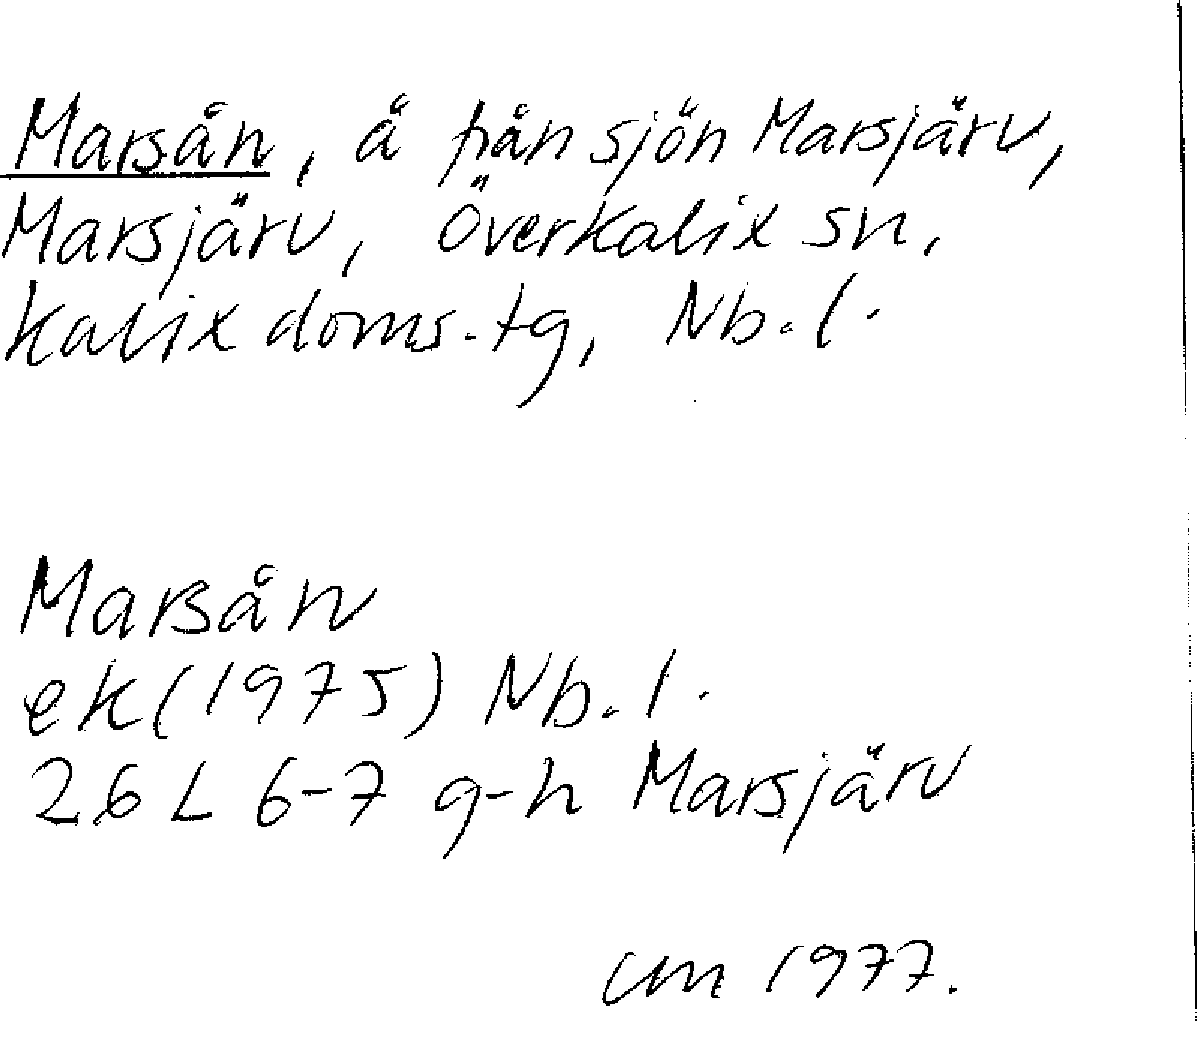 Marsån, å från sjön Marsjärv,
Marsjärv, Överkalix sn,
Kalix doms.tg, Nb.l.
Marsån
ek(1975) Nb.l.
26 L 6-7 g-h Marsjärv
CM 1977.